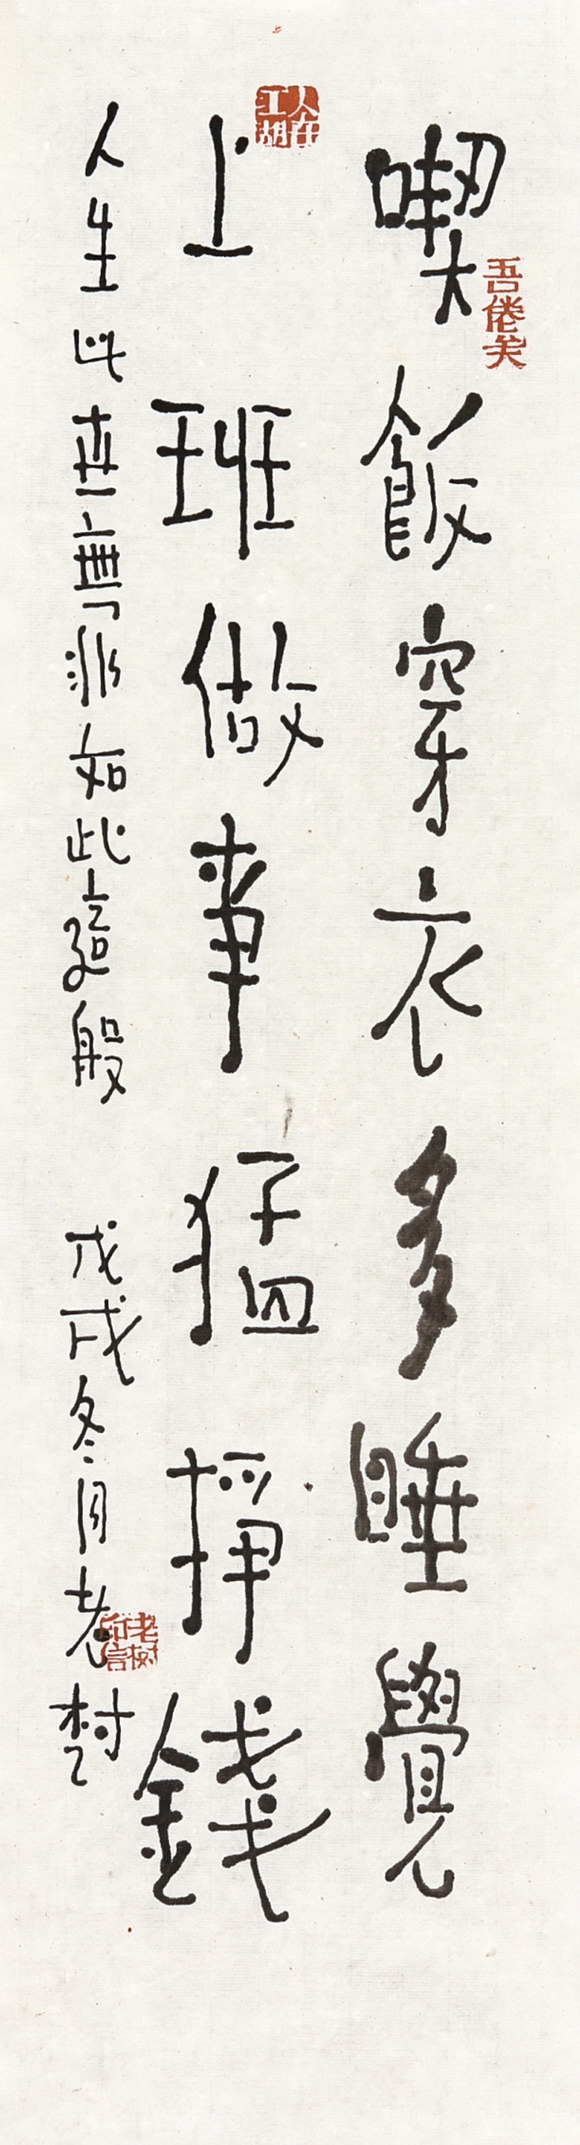 吾倦矣
喫飯穿衣多睡覺
人在江湖
上班做事猛掙錢
人生此世無非如此這般 戊戌冬月老樹
老樹印信